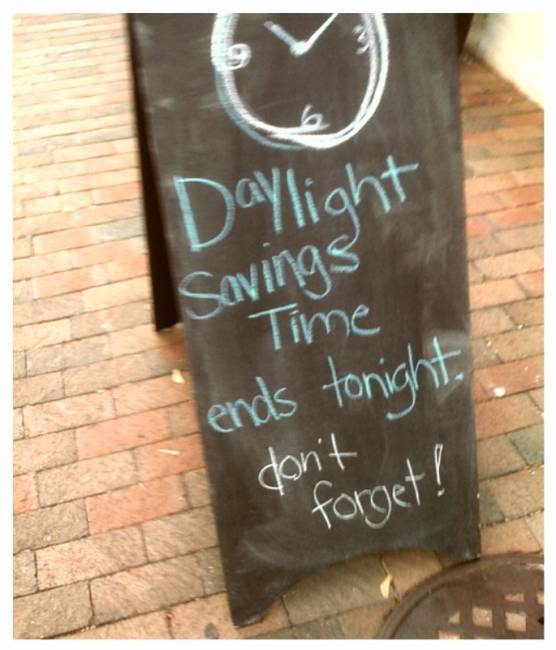 9 3
6
Daylight
Savings
Time
ends tonight.
don't
forget!